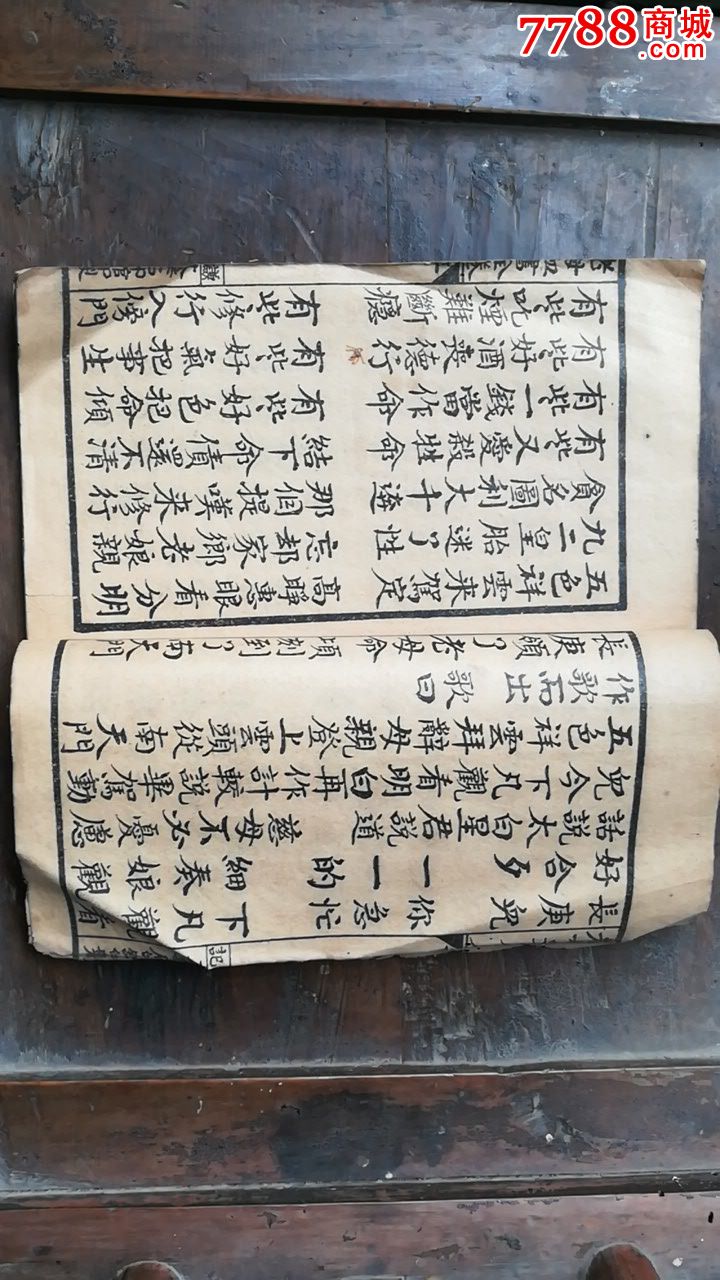 7788商城
.com
長庚兒 你急忙 下凡觀看
好合夕 一一的 細奏娘觀
話說太白星君說道慈母不必憂慮
兒今下凡觀看明白再作計較說畢駕動
五色祥雲拜辭母親登上雲頭從南天門
作歌而出歌曰
長庚領了老母命 頃刻到了南天門
五色祥雲來駕定 高睜惠眼看分明
九二皇胎迷了性 忘却家鄉老娘親
貪名圖利大千遼 那個提嘆來修行
有些又愛殺牲命 結下命債還不清
有些一錢當作命 有些好色把命傾
有些好酒喪德行 有些好氣把事生
有些吃煙難斷癮 有些修行入傍門